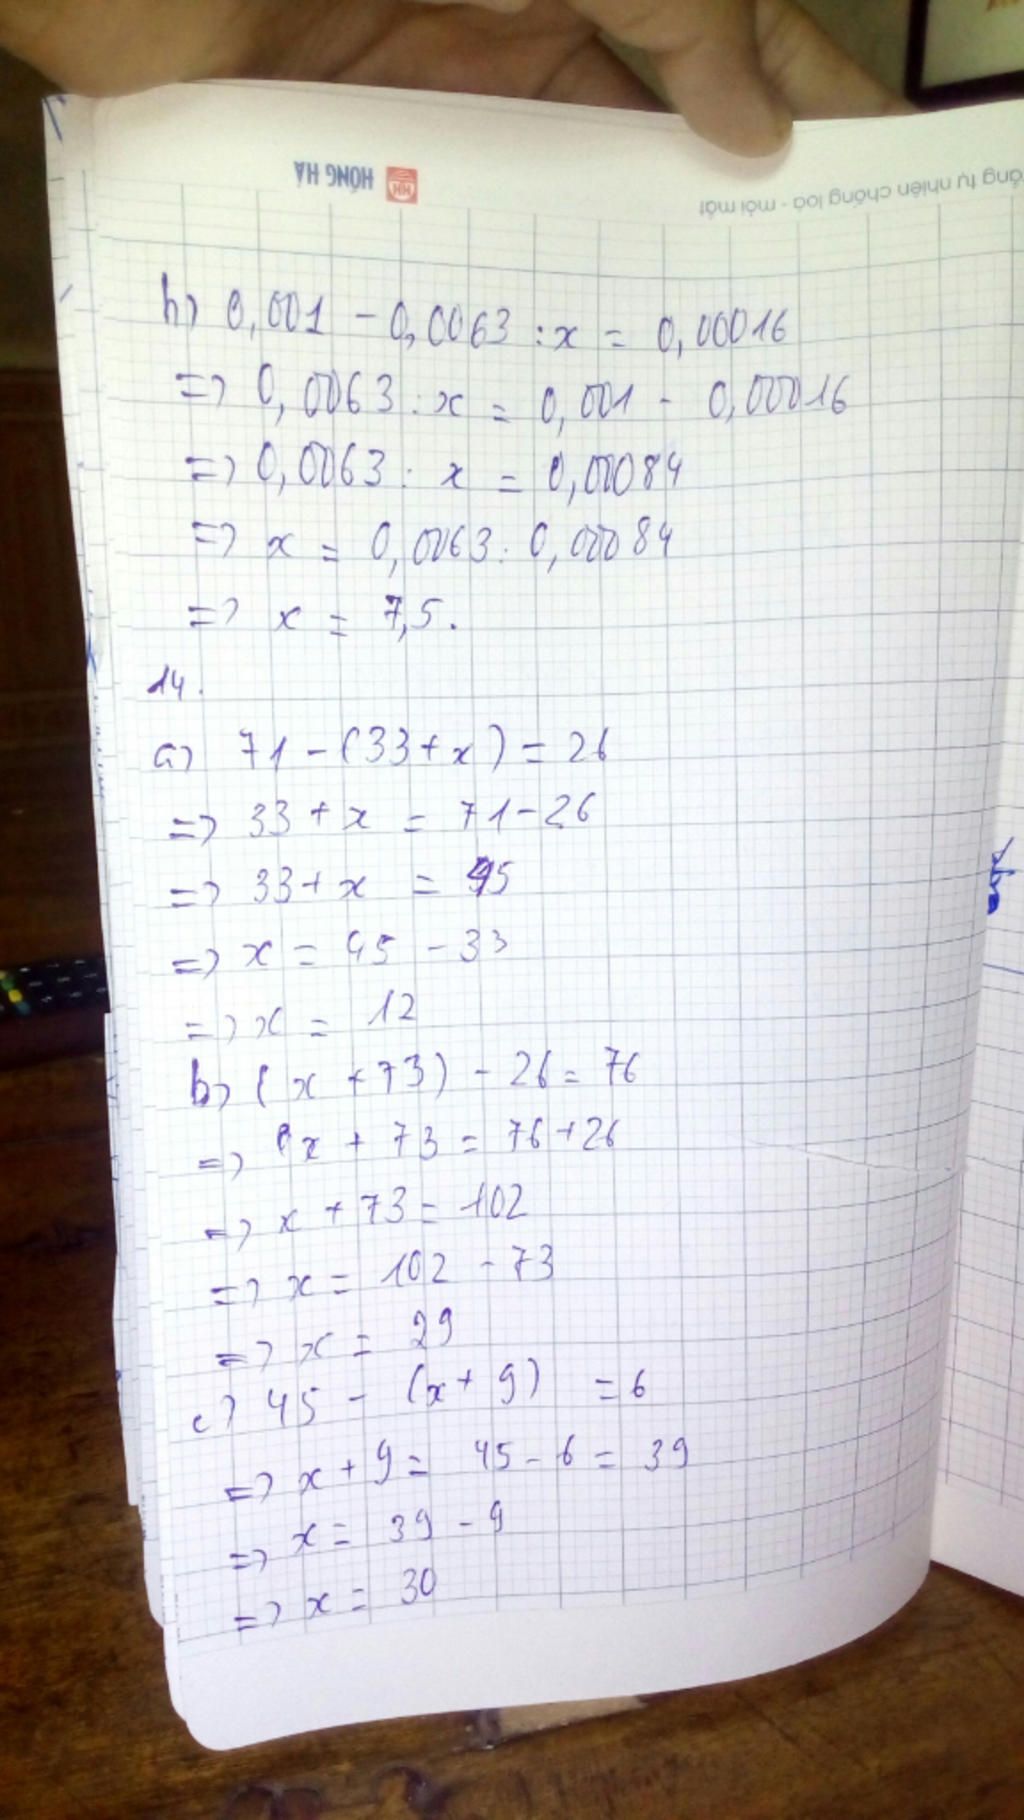 HỒNG HÀ
HH
ắng tự nhiên chống loá - mỏi mắt
h) 0,001 - 0,0063 : x = 0,00016
=> 0,0063 : x = 0,001 - 0,00016
=> 0,0063 : x = 0,00084
=> x = 0,0063 : 0,00084
=> x = 7,5.
14.
a) 71 - (33 + x) = 26
=> 33 + x = 71 - 26
=> 33 + x = 45
=> x = 45 - 33
=> x = 12
b) (x + 73) - 26 = 76
=> x + 73 = 76 + 26
=> x + 73 = 102
=> x = 102 - 73
=> x = 29
c) 45 - (x + 9) = 6
=> x + 9 = 45 - 6 = 39
=> x = 39 - 9
=> x = 30